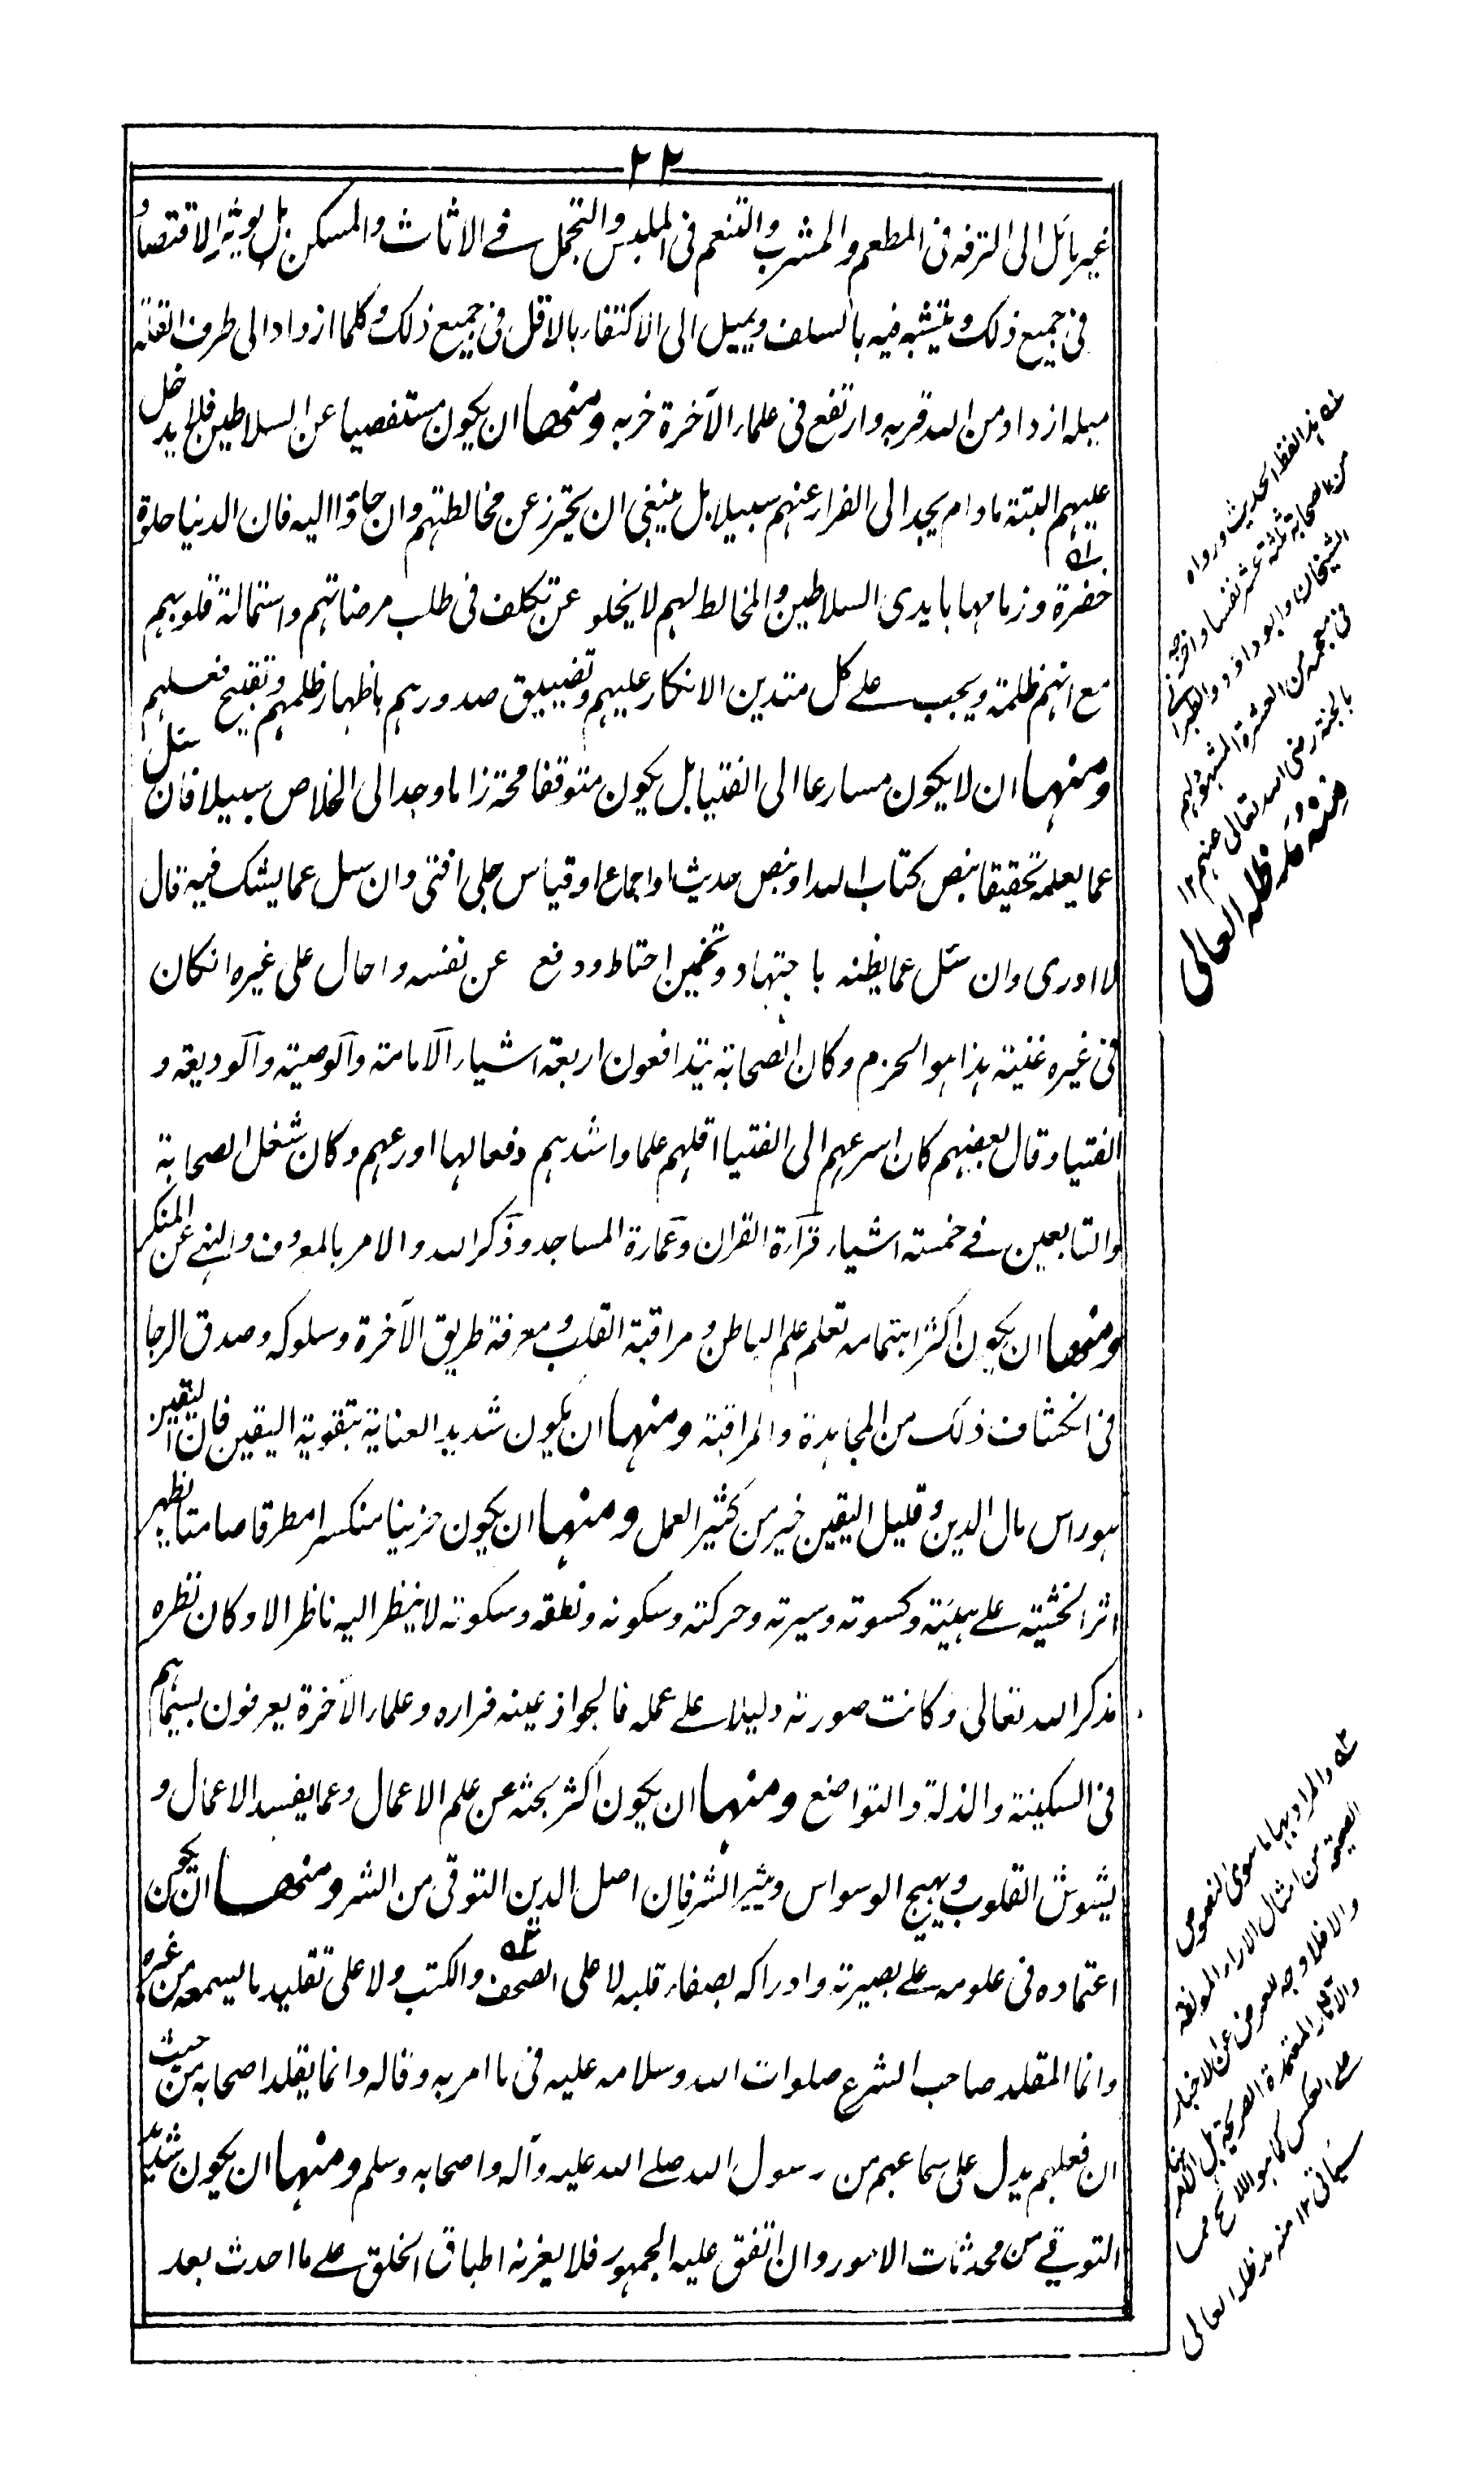 ٢٢
غير مائل الى الترفه فى المطعم والمشرب والتنعم فى الملبس والتجمل فے الاثاث والمسكن بل يوثر الاقتصاد
فى جميع ذلك ويتشبه فيه بالسلف ويميل الى الاكتفاء بالاقل فى جميع ذلك وكلما ازداد الى طرف القلة
ميله ازداد من الله قربه وارتفع فى علماء الآخرة خربه ومنها ان يكون مستقصيا عن السلاطين فلا يدخل
عليهم البتة مادام يجد الى الفرار عنهم سبيلا بل ينبغى ان يحترز عن مخالطتهم وان جاؤا اليه فان الدنيا حلوة
خضرة وزمامها بايدى السلاطين والمخالط لهم لا يخلو عن تكلف فى طلب مرضاتهم واستمالة قلوبهم
مع انهم ظلمة ويجب علے كل متدين الانكار عليهم وتضييق صدورهم باظهار ظلمهم وتقبيح فعلهم
ومنها ان لا يكون مسارعا الى الفتيا بل يكون متوقفا محترزا ما وجد الى الخلاص سبيلا فان سئل
عما يعلمه تحقيقا بنص كتاب الله او بنص حديث او اجماع او قياس جلى افتى وان سئل عما يشك فيه قال
لا ادرى وان سئل عما يظنه باجتهاد وتخمين احتاط ودفع عن نفسه واحال على غيره انكان
فى غيره غنية هذا هو الحزم وكان الصحابة يتدافعون اربعة اشياء الامامة والوصية والوديعة و
الفتيا وقال بعضهم كان اسرعهم الى الفتيا اقلهم علما واشدهم دفعا لها اورعهم وكان شغل الصحابة
والتابعين فے خمسة اشياء قراءة القران وعمارة المساجد وذكر الله والامر بالمعروف والنهے عن المنكر
ومنها ان يكون اكثر اهتمامه تعلم علم الباطن ومراقبة القلب ومعرفة طريق الآخرة وسلوكه وصدق الرجا
فى انكشاف ذلك من المجاهدة والمراقبة ومنها ان يكون شديد العناية بتقوية اليقين فان اليقين
هو راس مال الدين وقليل اليقين خير من كثير العمل ومنها ان يكون حزينا منكسرا مطرقا صامتا يظهر
اثر الخشية علے هيئته وكسوته وسيرته وحركته وسكونه ونطقه وسكوته لا ينظر اليه ناظر الا وكان نظره
مذكر الله تعالى وكانت صورته دليلا علے عمله فالجواد عينه فراره وعلماء الآخرة يعرفون بسيماهم
فى السكينة والذلة والتواضع ومنها ان يكون اكثر بحثه عن علم الاعمال وعما يفسد الاعمال و
يشوش القلوب ويهيج الوسواس ويثير الشر فان اصل الدين التوقى من الشر ومنها ان يكون
اعتماده فى علومه علے بصيرته وادراكه بصفاء قلبه لا على الصحف والكتب ولا على تقليد ما يسمعه من غيره
وانما المقلد صاحب الشرع صلوات الله وسلامه عليه فى ما امر به وقاله وانما يقلد اصحابه من حيث
ان فعلهم يدل على سماعهم من رسول الله صلے الله عليه وآله واصحابه وسلم ومنها ان يكون شديد
التوقے من محدثات الامور وان اتفق عليه الجمهور فلا يغرنه اطباق الخلق علے ما احدث بعد
هذا لفظ الحديث ورواه
من الصحابة ثلثة عشر نفسا واخرجه
الشيخان وابو داؤد والطبرانى
فى معجمه من العشرة المبشرة لهم
بالجنة رضى الله تعالى عنهم ١٢
منه مد ظله العالى
والمراد بها ما سوى النصوص
الصحيحة من امثال الاراء المولفة
والا فلا وجه للعرض عن الاخبار
والآثار المعتمدة الصريحة بل
علے العكس كما هو اللائح مما
سياتى ١٢ منه مد ظله العالى